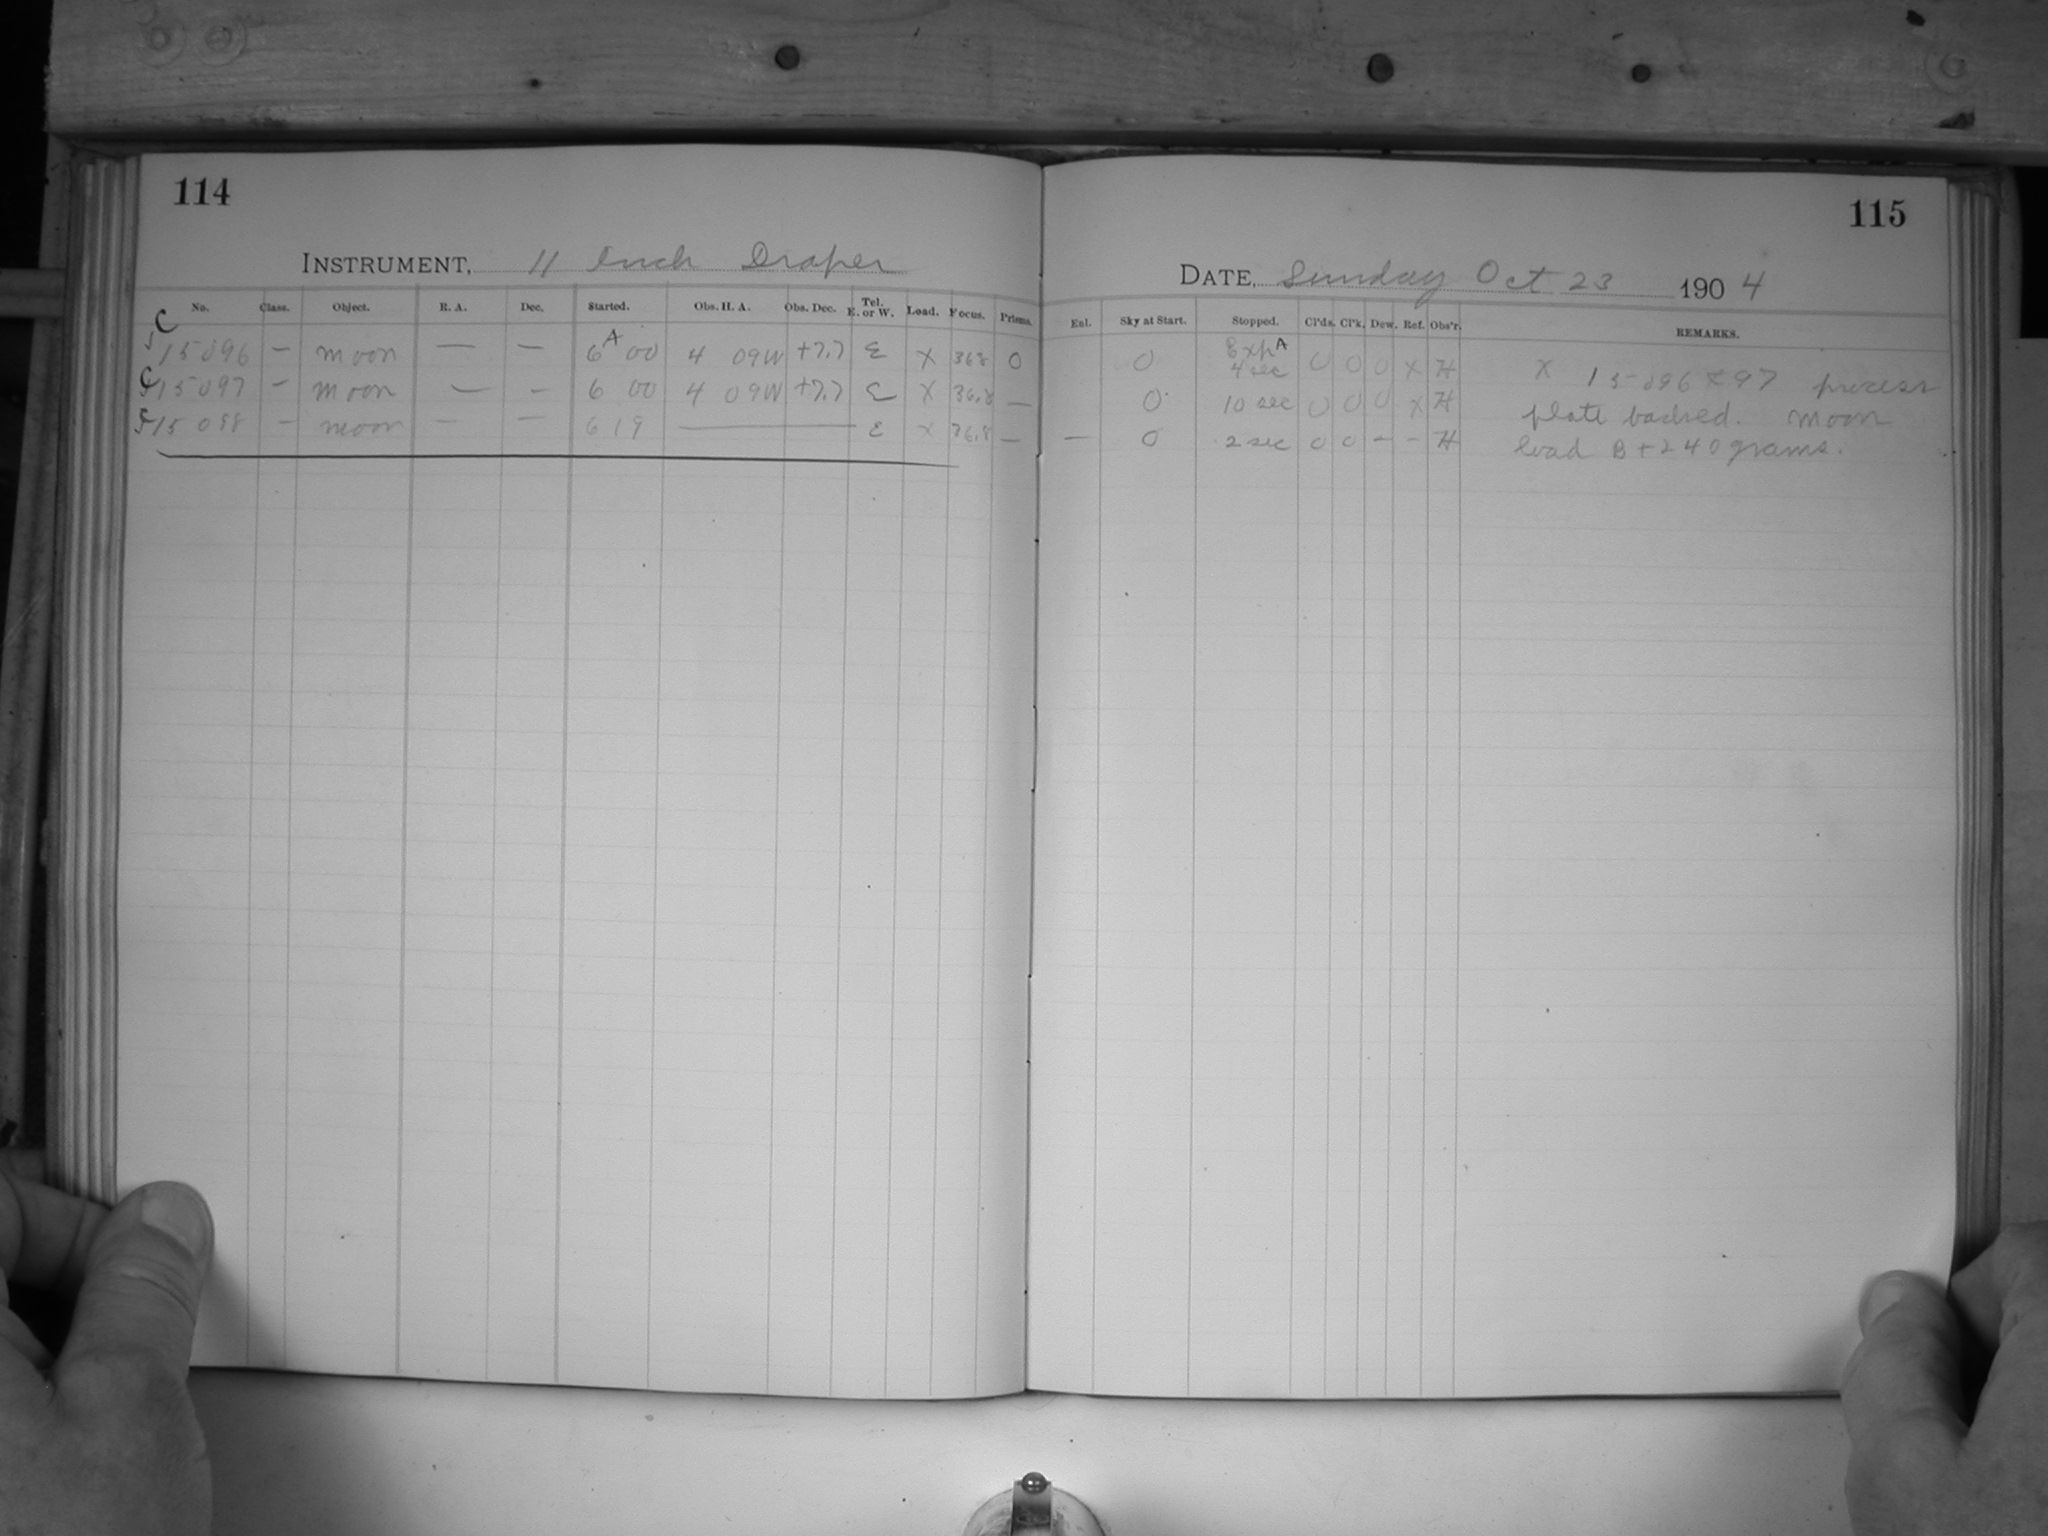 114
115
INSTRUMENT, 11 Inch Draper
DATE, Sunday Oct 23 1904
No. Class. Object. R. A. Dec. Started. Obs. H. A. Obs. Dec. Tel. E. or W. Load. Focus. Prisms. Enl. Sky at Start. Stopped. Cl'ds. Cl'k. Dew. Ref. Obs'r. REMARKS.
C 15096 — moon — — 6 A 00 4 09W +7.7 E X 36.8 O O Exp A 4 sec O O O X H X 15096 & 97 process
C 15097 — moon — — 6 00 4 09W +7.7 E X 36.8 — O 10 sec O O O X H plate backed. moon
C 15098 — moon — — 6 19 — E X 36.8 — — O 2 sec O O — — H load B + 240 grams.